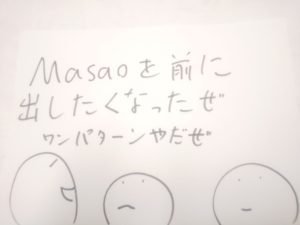 Masaoを前に
出したくなったぜ
ワンパターンやだぜ